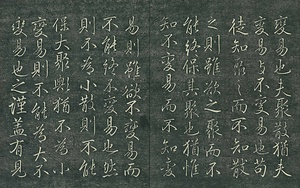 變易也夫聚散猶夫
變易与不變易也苟
徒知聚之而不知散
之則雖欲之聚而不
能終保其聚也猶惟
知不變易而不知變
易則雖欲不變易而
不能終不變易也然
則不為小散則不能
保大聚與猶不為小
變易則不能為大不
變易也之謹蓋有見